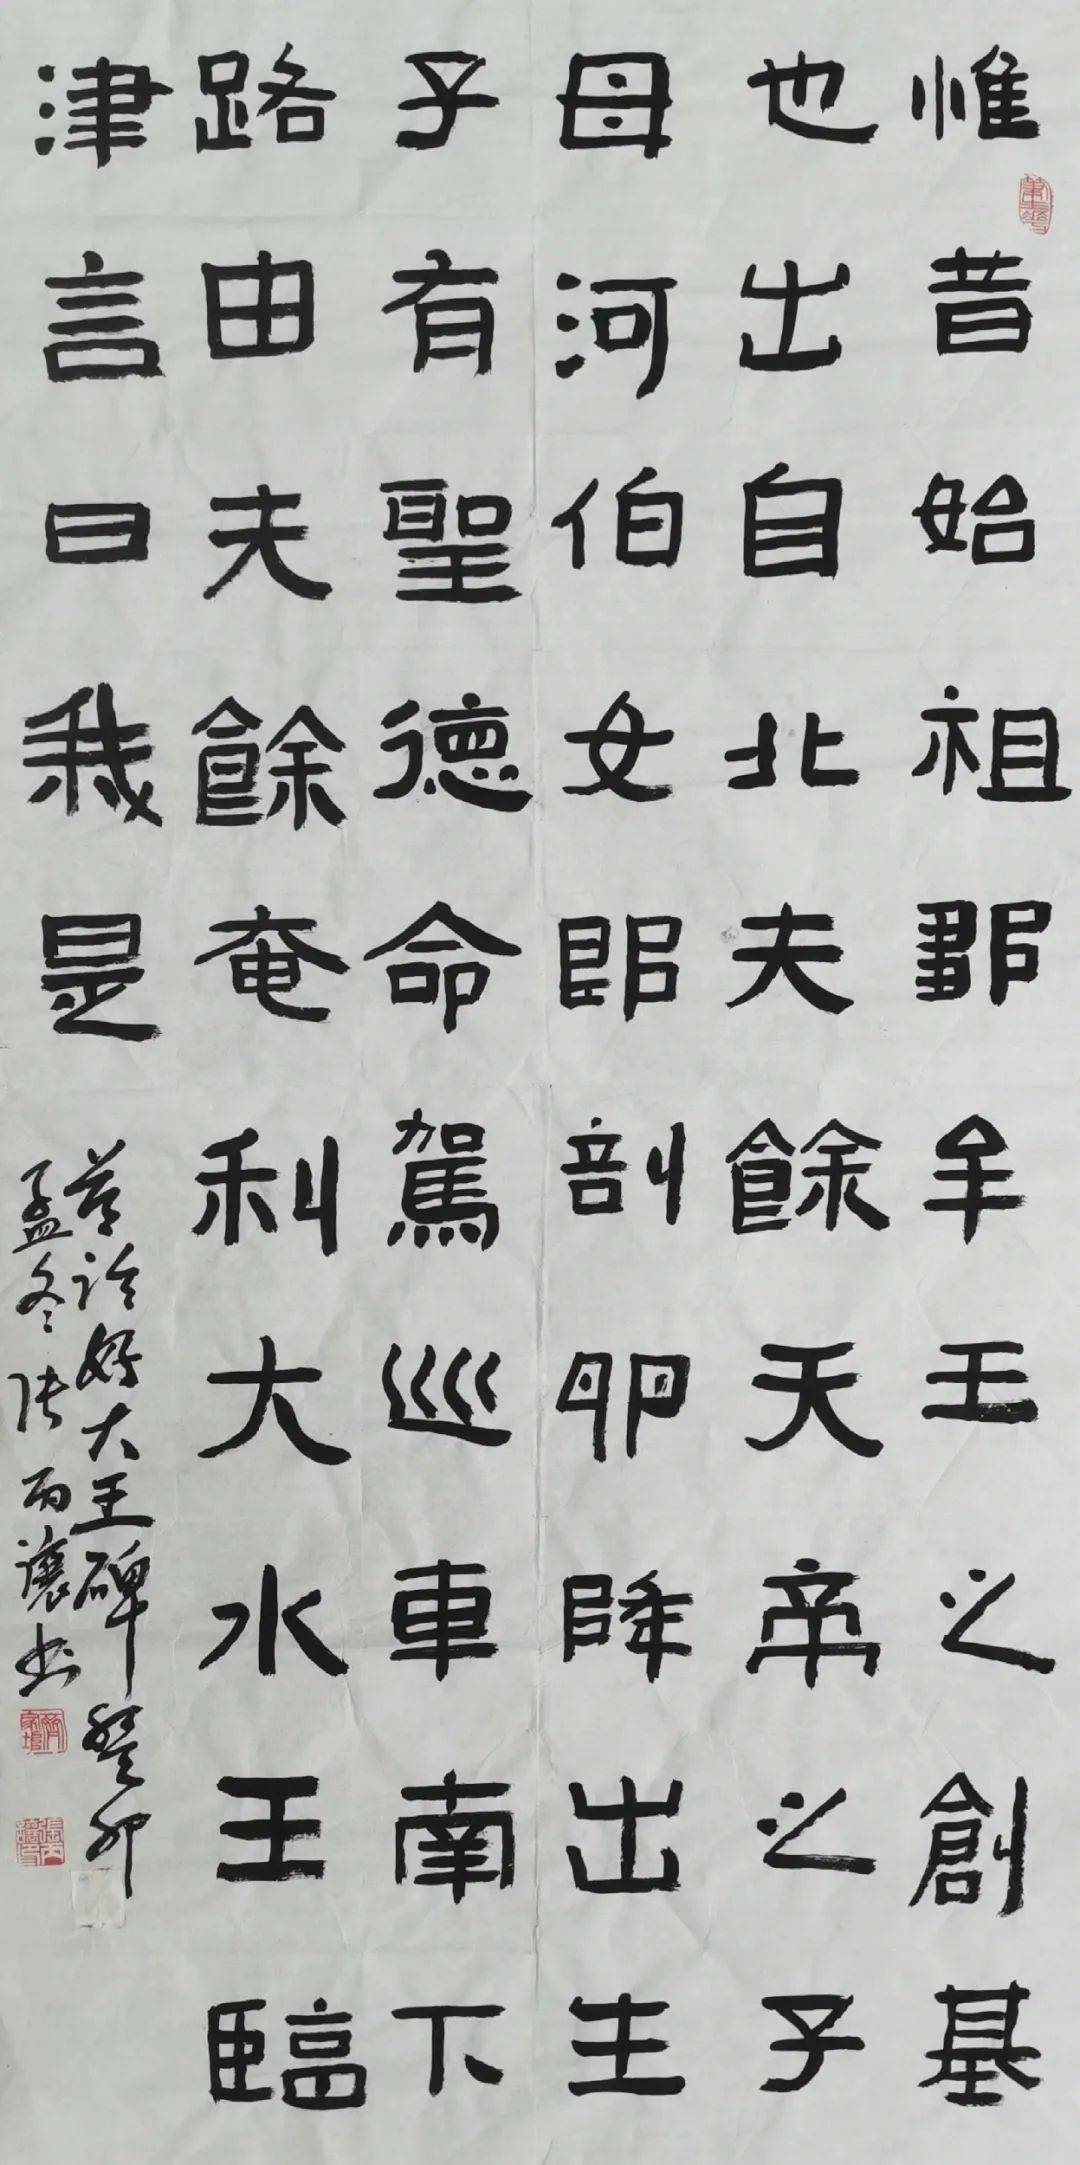 惟昔始祖鄒牟王之創基
也出自北夫餘天帝之子
母河伯女郎剖卵降出生
子有聖德命駕巡車南下
路由夫餘奄利大水王臨
津言曰我是
節臨好大王碑癸卯
孟冬張丙讓书